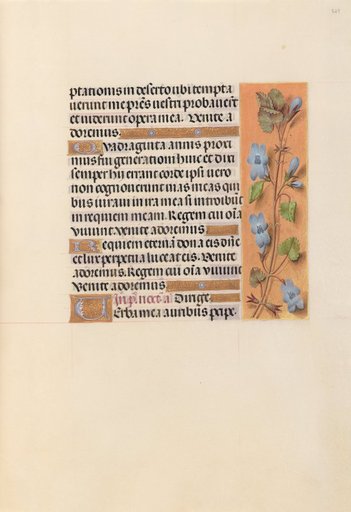 ptationis in deserto ubi tempta
uerunt me pr̄es uestri probauer̄t
et uiderunt opera mea. Venite a
doremus.
Quadraginta annis prox
imus fui generationi huic et dixi
semper hy errant corde ipsi uero
non cognouerunt uias meas qui
bus iuraui in ira mea si introibūt
in requiem meam. Regem cui oīa
uiuunt. venite adoremus
Requiem eternā dona eis dn̄e
et lux perpetua luceat eis. Venite
adoremus. Regem cui oīa viuunt
Venite adoremus
Dirige.
Verba mea auribus pcipe